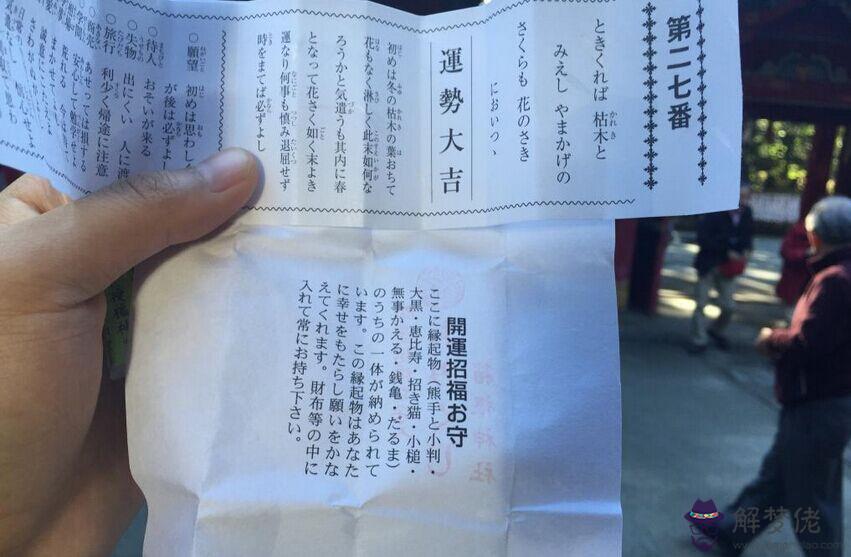 第二七番
ときくれば 枯木と
みえし やまかげの
さくらも 花のさき
においつゝ
運勢大吉
初めは冬の枯木の葉おちて
花もなく淋しく此末如何な
ろうかと気遣うも其内に春
となって花さく如く末よき
運なり何事も慎み退屈せず
時をまてば必ずよし
○願望 初めは思わし
が後は必ずよし
○待人 おそいが来る
○失物 出にくい 人に渡
○旅行 利少く帰途に注意
安心して勉学せよ
開運招福お守
ここに縁起物（熊手と小判・
大黒・恵比寿・招き猫・小槌・
無事かえる・銭亀・だるま）
のうちの一体が納められて
います。この縁起物はあなた
に幸せをもたらし願いをかな
えてくれます。財布等の中に
入れて常にお持ち下さい。
解梦佬